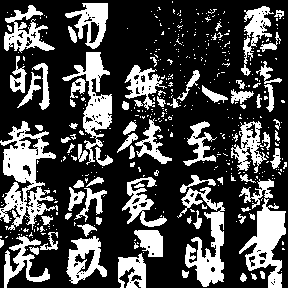 至清則無魚
人至察則
無徒冕
而前旒所以
蔽明黈纊充